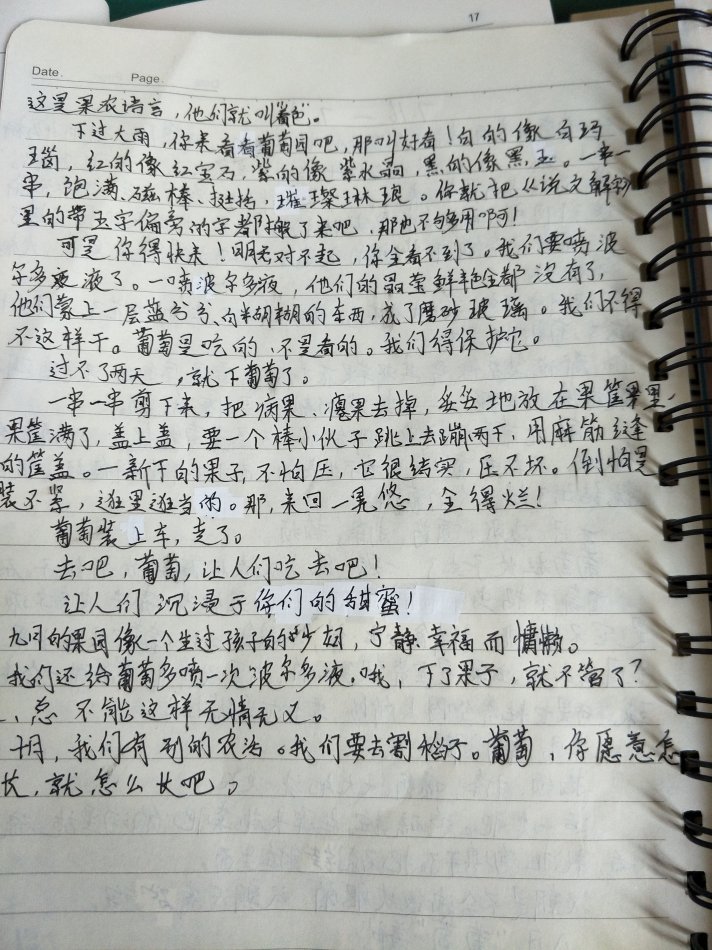 17
Date.
Page.
这是果农语言，他们就叫“着色”。
下过大雨，你来看看葡萄园吧，那叫好看！白的像白玛
瑙，红的像红宝石，紫的像紫水晶，黑的像黑玉。一串一
串，饱满、磁棒、挺括，璀璨琳琅。你就把《说文解字》
里的带玉字偏旁的字都搬了来吧，那也不够用啊！
可是你得快来！明天对不起，你全看不到了。我们要喷波
尔多液了。一喷波尔多液，他们的最莹鲜艳全都没有了，
他们蒙上一层蓝兮兮、白糊糊的东西，成了磨砂玻璃。我们不得
不这样干。葡萄是吃的，不是看的。我们得保护它。
过不了两天，就下葡萄了。
一串一串剪下来，把病果、瘪果去掉，妥妥地放在果筐果里。
果筐满了，盖上盖，要一个棒小伙子跳上去蹦两下，用麻筋缝
的筐盖。一新下的果子，不怕压，它很结实，压不坏。倒怕是
装不紧，逛里逛当的。那，来回一晃悠，全得烂！
葡萄装上车，走了。
去吧，葡萄，让人们吃去吧！
让人们沉浸于你们的甜蜜！
九月的果园像一个生过孩子的少妇，宁静、幸福而慵懒。
我们还给葡萄多喷一次波尔多液。哦，下了果子，就不管了？
人，总不能这样无情无义。
十月，我们有别的农活。我们要去割稻子。葡萄，你愿意怎
长，就怎么长吧。